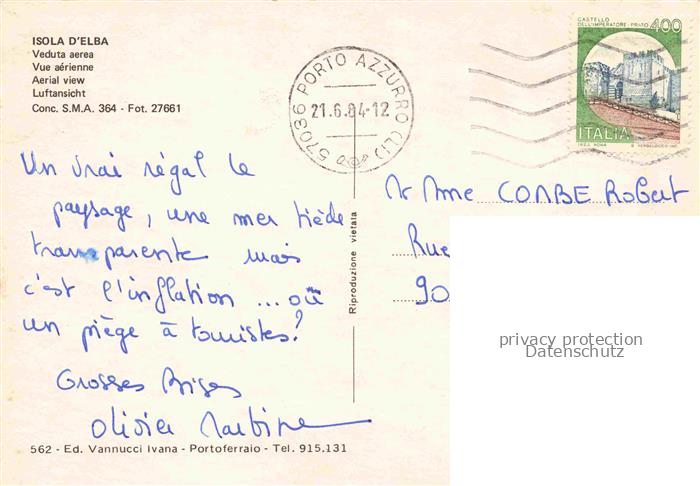 ISOLA D'ELBA
Veduta aerea
Vue aérienne
Aerial view
Luftansicht
Conc. S.M.A. 364 - Fot. 27661
57036 PORTO AZZURRO (LI)
21.6.84-12
CASTELLO
DELL'IMPERATORE-PRATO
400
ITALIA
Un vrai régal le
paysage, une mer tiède
transparente mais
c'est l'inflation ... où
un piège à touristes?
Grosses Bises
Olivier
Mr Mme COMBE Robert
Rue
90
Riproduzione vietata
privacy protection
Datenschutz
562 - Ed. Vannucci Ivana - Portoferraio - Tel. 915.131